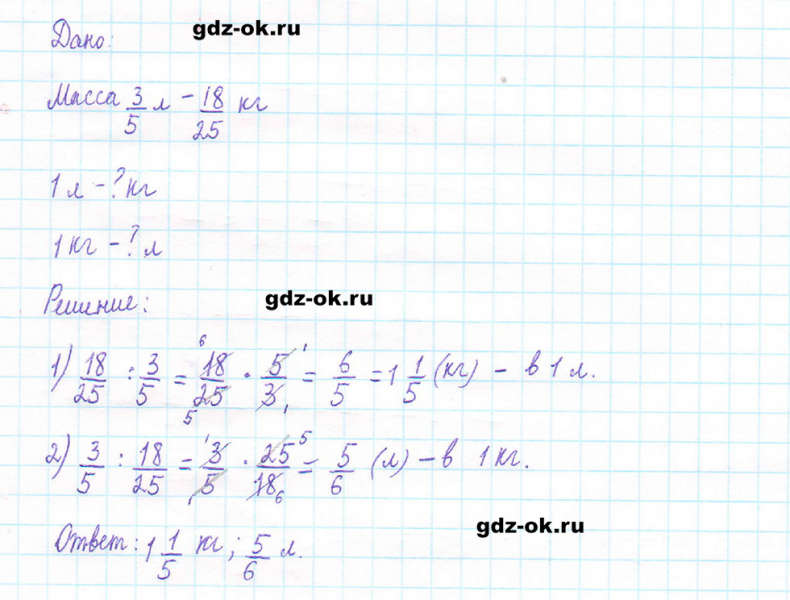 gdz-ok.ru
Дано:
Масса 3/5 л - 18/25 кг
1 л - ? кг
1 кг - ? л
Решение:
gdz-ok.ru
1) 18/25 : 3/5 = 18/25 · 5/3 = 6/5 = 1 1/5 (кг) - в 1 л.
2) 3/5 : 18/25 = 3/5 · 25/18 = 5/6 (л) - в 1 кг.
gdz-ok.ru
Ответ: 1 1/5 кг; 5/6 л.